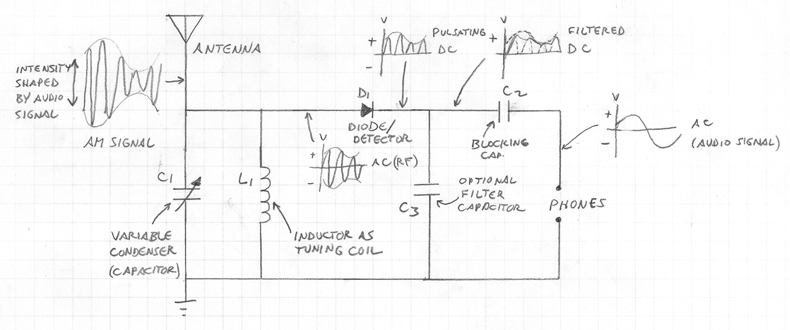 ANTENNA
INTENSITY
SHAPED
BY AUDIO
SIGNAL
AM SIGNAL
V
+
-
PULSATING
DC
V
+
FILTERED
DC
D1
DIODE/
DETECTOR
C2
BLOCKING
CAP.
V
+
-
AC
(AUDIO SIGNAL)
+
-
AC (RF)
C1
L1
C3
OPTIONAL
FILTER
CAPACITOR
PHONES
VARIABLE
CONDENSER
(CAPACITOR)
INDUCTOR AS
TUNING COIL